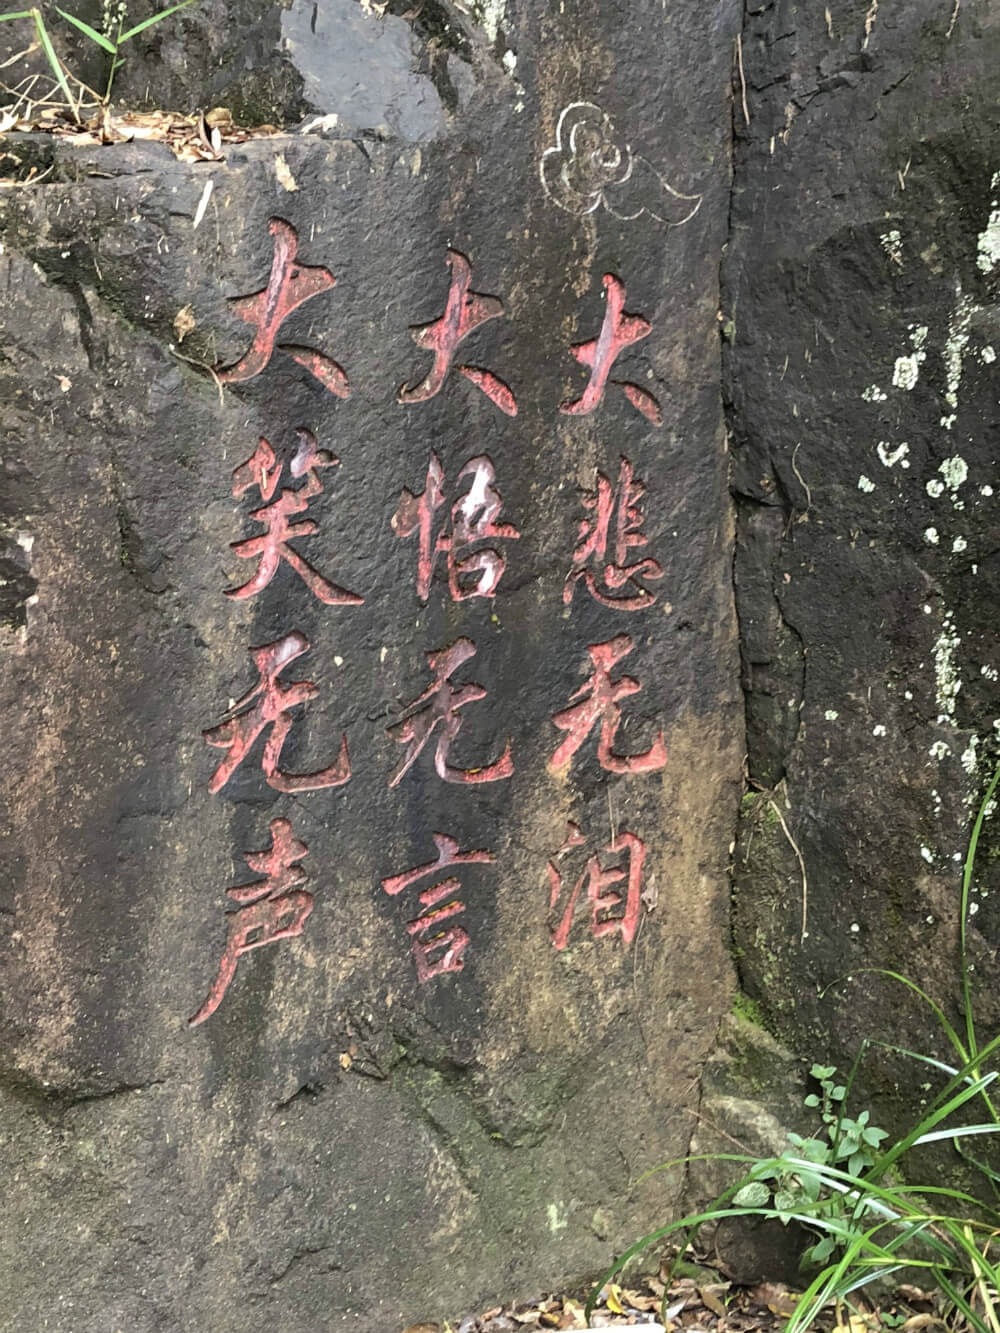 大悲无泪
大悟无言
大笑无声